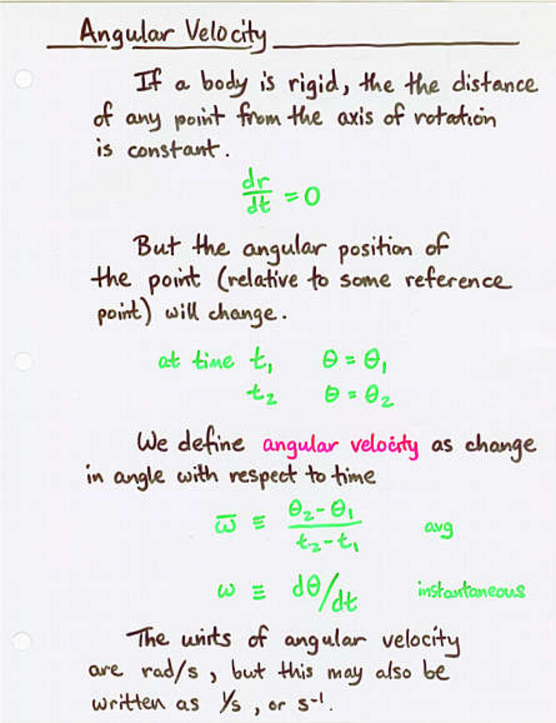 Angular Velocity
If a body is rigid, the the distance
of any point from the axis of rotation
is constant.
dr/dt = 0
But the angular position of
the point (relative to some reference
point) will change.
at time t₁ θ = θ₁
t₂ θ = θ₂
We define angular velocity as change
in angle with respect to time
ω̅ ≡ (θ₂-θ₁)/(t₂-t₁) avg
ω ≡ dθ/dt instantaneous
The units of angular velocity
are rad/s, but this may also be
written as 1/s, or s⁻¹.